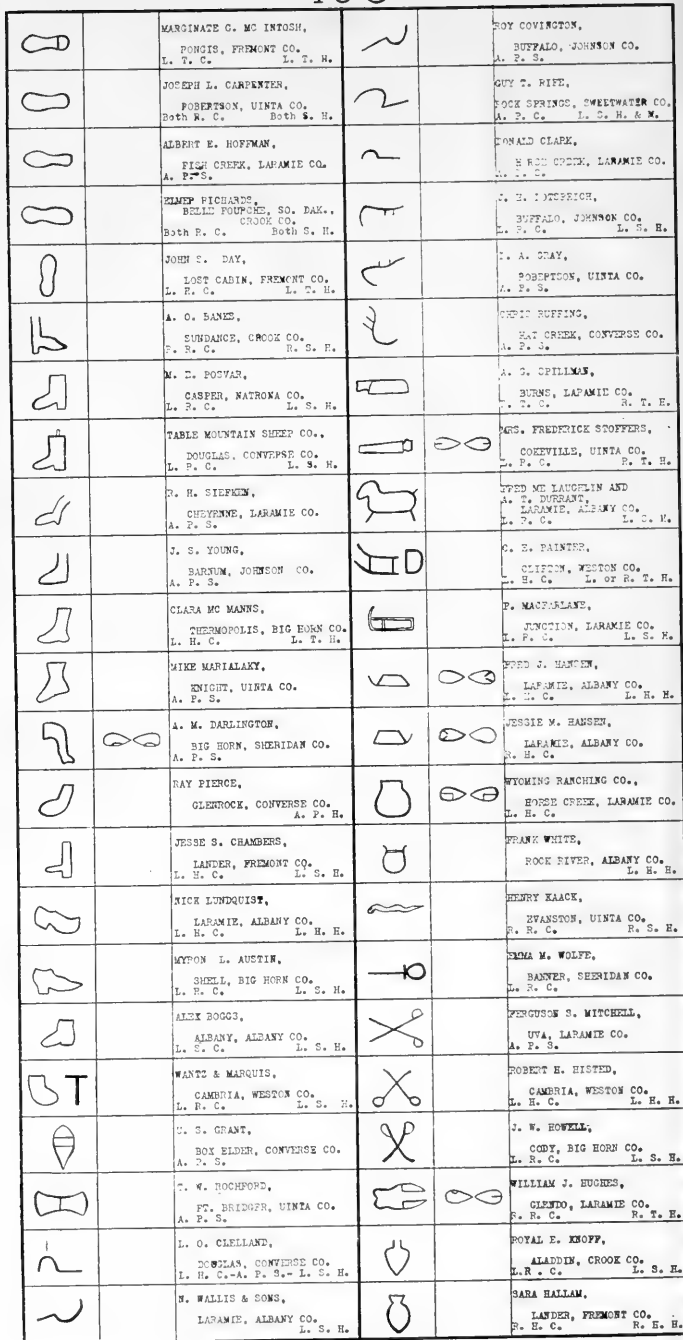 MARGINATE G. MC INTOSH,
PONGIS, FREMONT CO.
L. T. C. L. T. H.
JOSEPH L. CARPENTER,
ROBERTSON, UINTA CO.
Both R. C. Both S. H.
ALBERT E. HOFFMAN,
FISH CREEK, LARAMIE CO.
A. P. S.
ELMER RICHARDS,
BELLE FOURCHE, SO. DAK.,
CROOK CO.
Both R. C. Both S. H.
JOHN S. DAY,
LOST CABIN, FREMONT CO.
L. H. C. L. T. H.
A. O. BANKS,
SUNDANCE, CROOK CO.
R. R. C. R. S. H.
M. E. POSVAR,
CASPER, NATRONA CO.
L. R. C. L. S. H.
TABLE MOUNTAIN SHEEP CO.,
DOUGLAS, CONVERSE CO.
L. P. C. L. S. H.
R. H. SIEFKEN,
CHEYENNE, LARAMIE CO.
A. P. S.
J. S. YOUNG,
BARNUM, JOHNSON CO.
A. P. S.
CLARA MC MANNS,
THERMOPOLIS, BIG HORN CO.
L. H. C. L. T. H.
MIKE MARIALAKY,
KNIGHT, UINTA CO.
A. P. S.
A. M. DARLINGTON,
BIG HORN, SHERIDAN CO.
A. P. S.
RAY PIERCE,
GLENROCK, CONVERSE CO.
A. P. H.
JESSE S. CHAMBERS,
LANDER, FREMONT CO.
L. H. C. L. S. H.
NICK LUNDQUIST,
LARAMIE, ALBANY CO.
L. H. C. L. H. H.
MYRON L. AUSTIN,
SHELL, BIG HORN CO.
L. R. C. L. S. H.
ALEX BOGGS,
ALBANY, ALBANY CO.
L. S. C. L. S. H.
WANTZ & MARQUIS,
CAMBRIA, WESTON CO.
L. R. C. L. S. H.
S. GRANT,
BOX ELDER, CONVERSE CO.
A. P. S.
W. ROCHFORD,
FT. BRIDGER, UINTA CO.
A. P. S.
L. O. CLELLAND,
DOUGLAS, CONVERSE CO.
L. H. C.-A. P. S.- L. S. H.
N. WALLIS & SONS,
LARAMIE, ALBANY CO.
L. S. H.
ROY COVINGTON,
BUFFALO, JOHNSON CO.
A. P. S.
GUY T. RIFE,
ROCK SPRINGS, SWEETWATER CO.
A. P. C. L. S. H. & M.
DONALD CLARK,
CREEK, LARAMIE CO.
H.
BUFFALO, JOHNSON CO.
L. R. C. L. S. H.
A. GRAY,
ROBERTSON, UINTA CO.
A. P. S.
CHRIS RUFFING,
HAT CREEK, CONVERSE CO.
A. P. S.
A. G. SPILLMAN,
BURNS, LARAMIE CO.
T. C. R. T. H.
MRS. FREDERICK STOFFERS,
COKEVILLE, UINTA CO.
L. P. C. R. T. H.
FRED MC LAUGHLIN AND
A. T. DURRANT,
LARAMIE, ALBANY CO.
L. R. C. L. S. H.
C. E. PAINTER,
CLIFTON, WESTON CO.
L. H. C. L. or R. T. H.
P. MACFARLANE,
JUNCTION, LARAMIE CO.
L. P. C. L. S. H.
FRED J. HANSEN,
LARAMIE, ALBANY CO.
L. H. C. L. H. H.
JESSIE M. HANSEN,
LARAMIE, ALBANY CO.
R. H. C.
WYOMING RANCHING CO.,
HORSE CREEK, LARAMIE CO.
L. H. C.
FRANK WHITE,
ROCK RIVER, ALBANY CO.
L. H. H.
HENRY KAACK,
EVANSTON, UINTA CO.
R. R. C. R. S. H.
EMMA M. WOLFE,
BANNER, SHERIDAN CO.
L. R. C.
FERGUSON S. MITCHELL,
UVA, LARAMIE CO.
A. P. S.
ROBERT H. HISTED,
CAMBRIA, WESTON CO.
L. H. C. L. H. H.
J. W. HOWELL,
CODY, BIG HORN CO.
L. R. C. L. S. H.
WILLIAM J. HUGHES,
GLENDO, LARAMIE CO.
R. R. C. R. T. H.
ROYAL E. KNOFF,
ALADDIN, CROOK CO.
L.R . C. L. S. H.
SARA HALLAM,
LANDER, FREMONT CO.
R. H. C. R. H. H.